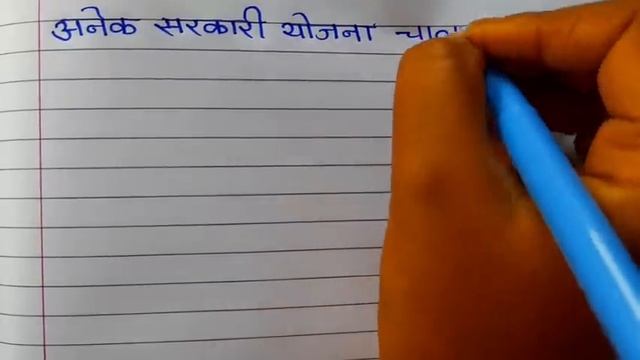 अनेक सरकारी योजना